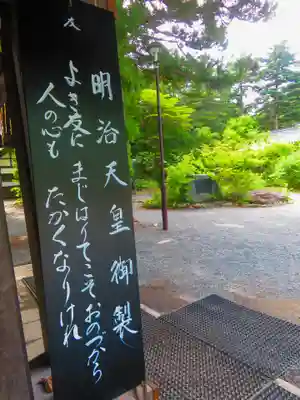 友
明治天皇御製
よき友に まじはりてこそ おのづから
人の心も たかくなりけれ